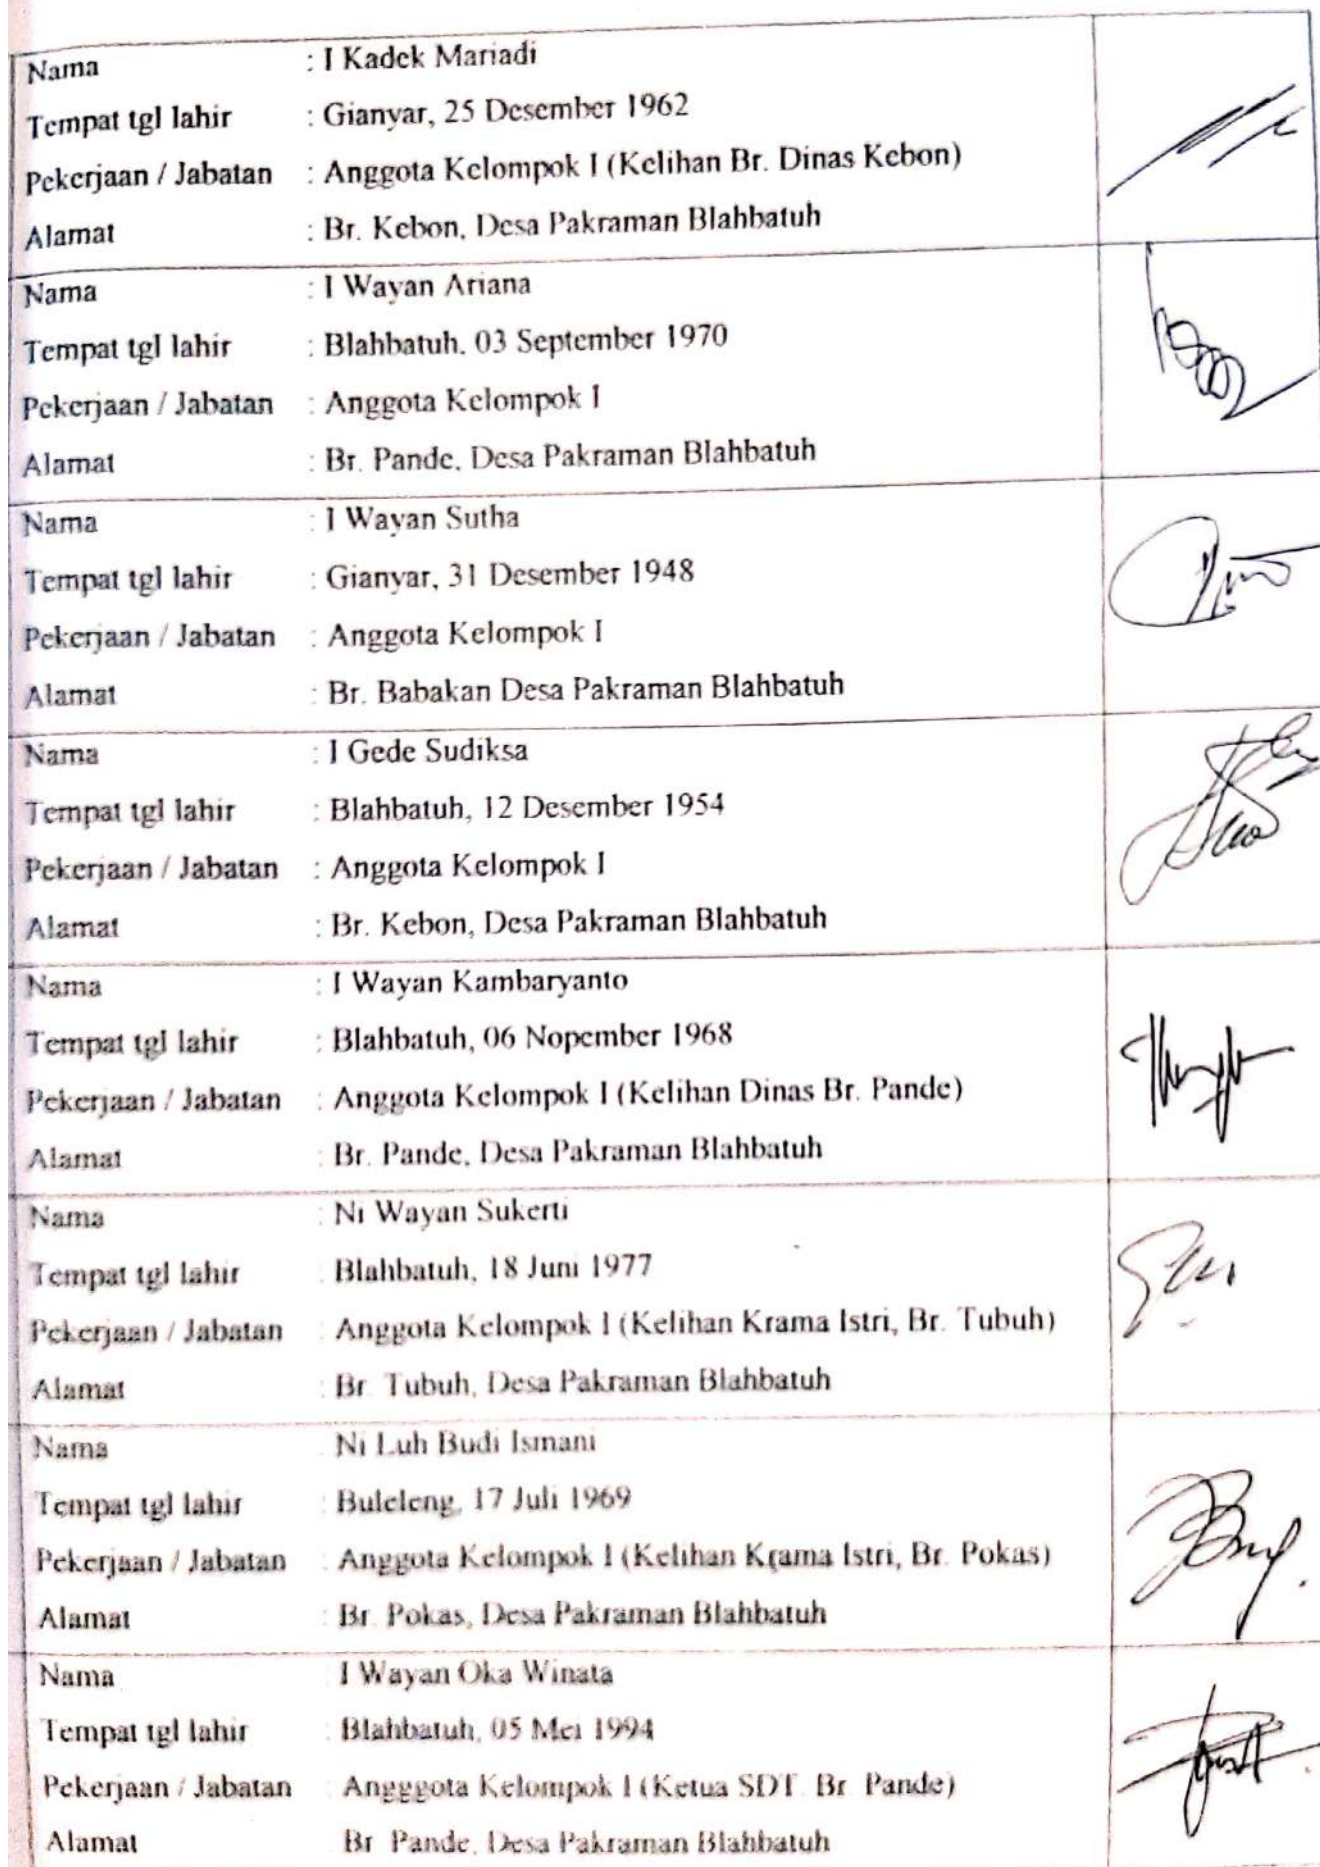 Nama : I Kadek Mariadi
Tempat tgl lahir : Gianyar, 25 Desember 1962
Pekerjaan / Jabatan : Anggota Kelompok I (Kelihan Br. Dinas Kebon)
Alamat : Br. Kebon, Desa Pakraman Blahbatuh
Nama : I Wayan Ariana
Tempat tgl lahir : Blahbatuh, 03 September 1970
Pekerjaan / Jabatan : Anggota Kelompok I
Alamat : Br. Pande, Desa Pakraman Blahbatuh
Nama : I Wayan Sutha
Tempat tgl lahir : Gianyar, 31 Desember 1948
Pekerjaan / Jabatan : Anggota Kelompok I
Alamat : Br. Babakan Desa Pakraman Blahbatuh
Nama : I Gede Sudiksa
Tempat tgl lahir : Blahbatuh, 12 Desember 1954
Pekerjaan / Jabatan : Anggota Kelompok I
Alamat : Br. Kebon, Desa Pakraman Blahbatuh
Nama : I Wayan Kambaryanto
Tempat tgl lahir : Blahbatuh, 06 Nopember 1968
Pekerjaan / Jabatan : Anggota Kelompok I (Kelihan Dinas Br. Pande)
Alamat : Br. Pande, Desa Pakraman Blahbatuh
Nama : Ni Wayan Sukerti
Tempat tgl lahir : Blahbatuh, 18 Juni 1977
Pekerjaan / Jabatan : Anggota Kelompok I (Kelihan Krama Istri, Br. Tubuh)
Alamat : Br. Tubuh, Desa Pakraman Blahbatuh
Nama : Ni Luh Budi Ismani
Tempat tgl lahir : Buleleng, 17 Juli 1969
Pekerjaan / Jabatan : Anggota Kelompok I (Kelihan Krama Istri, Br. Pokas)
Alamat : Br. Pokas, Desa Pakraman Blahbatuh
Nama : I Wayan Oka Winata
Tempat tgl lahir : Blahbatuh, 05 Mei 1994
Pekerjaan / Jabatan : Angggota Kelompok I (Ketua SDT. Br. Pande)
Alamat : Br. Pande, Desa Pakraman Blahbatuh